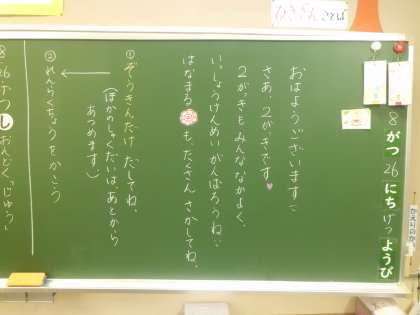 ひきざん ことば
8がつ26にちげつようび
おはようございます
さあ、2がっきです
2がっきも みんな なかよく、
いっしょうけんめい がんばろうね
はなまる も、たくさん さかしてね。
① ぞうきんだけ だしてね。
(ほかのしゅくだいは、あとから
あつめます)
② れんらくちょうをかこう
8
26
がつ
し おんどく、「じゅう